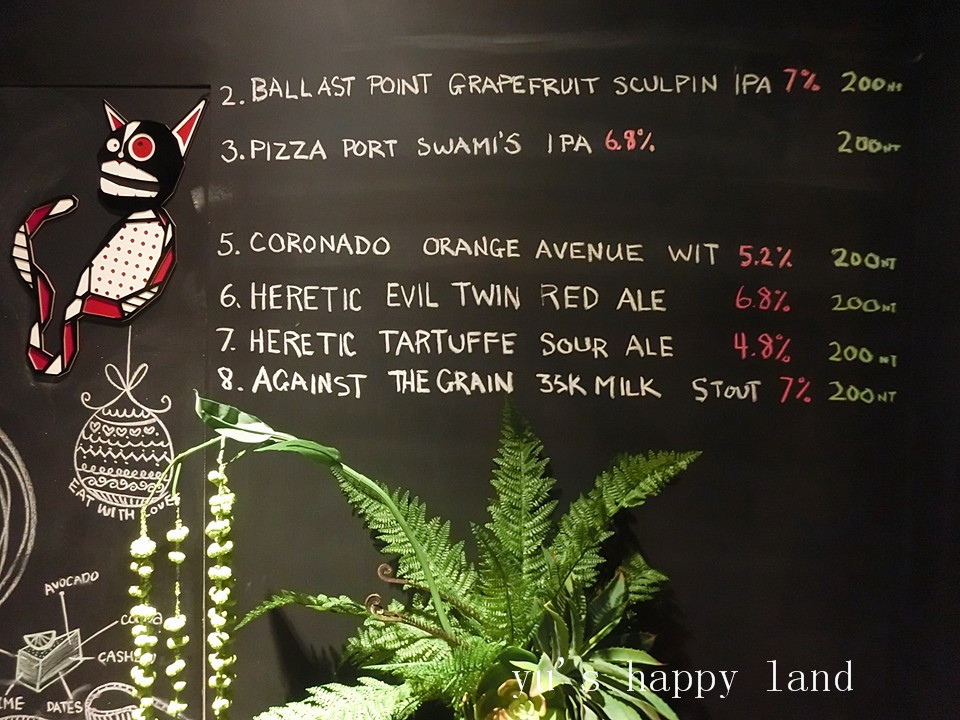 2. BALLAST POINT GRAPEFRUIT SCULPIN IPA 7% 200NT
3. PIZZA PORT SWAMI'S IPA 6.8% 200NT
5. CORONADO ORANGE AVENUE WIT 5.2% 200NT
6. HERETIC EVIL TWIN RED ALE 6.8% 200NT
7. HERETIC TARTUFFE SOUR ALE 4.8% 200NT
8. AGAINST THE GRAIN 35K MILK STOUT 7% 200NT
EAT WITH LOVE
AVOCADO
DATES
yu's happy land